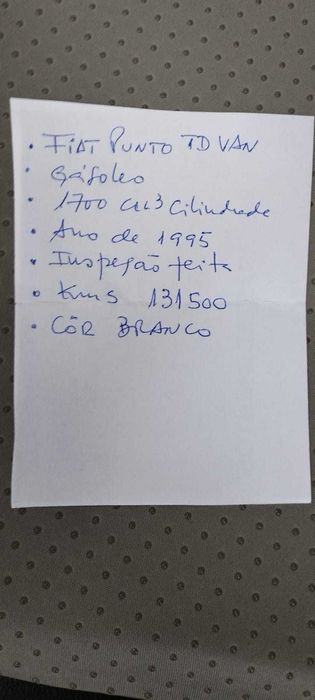 • FIAT PUNTO TD VAN
• Gásoleo
• 1700 cm3 Cilindrada
• Ano de 1995
• Inspeção feita
• Kms 131500
• CÔR BRANCO